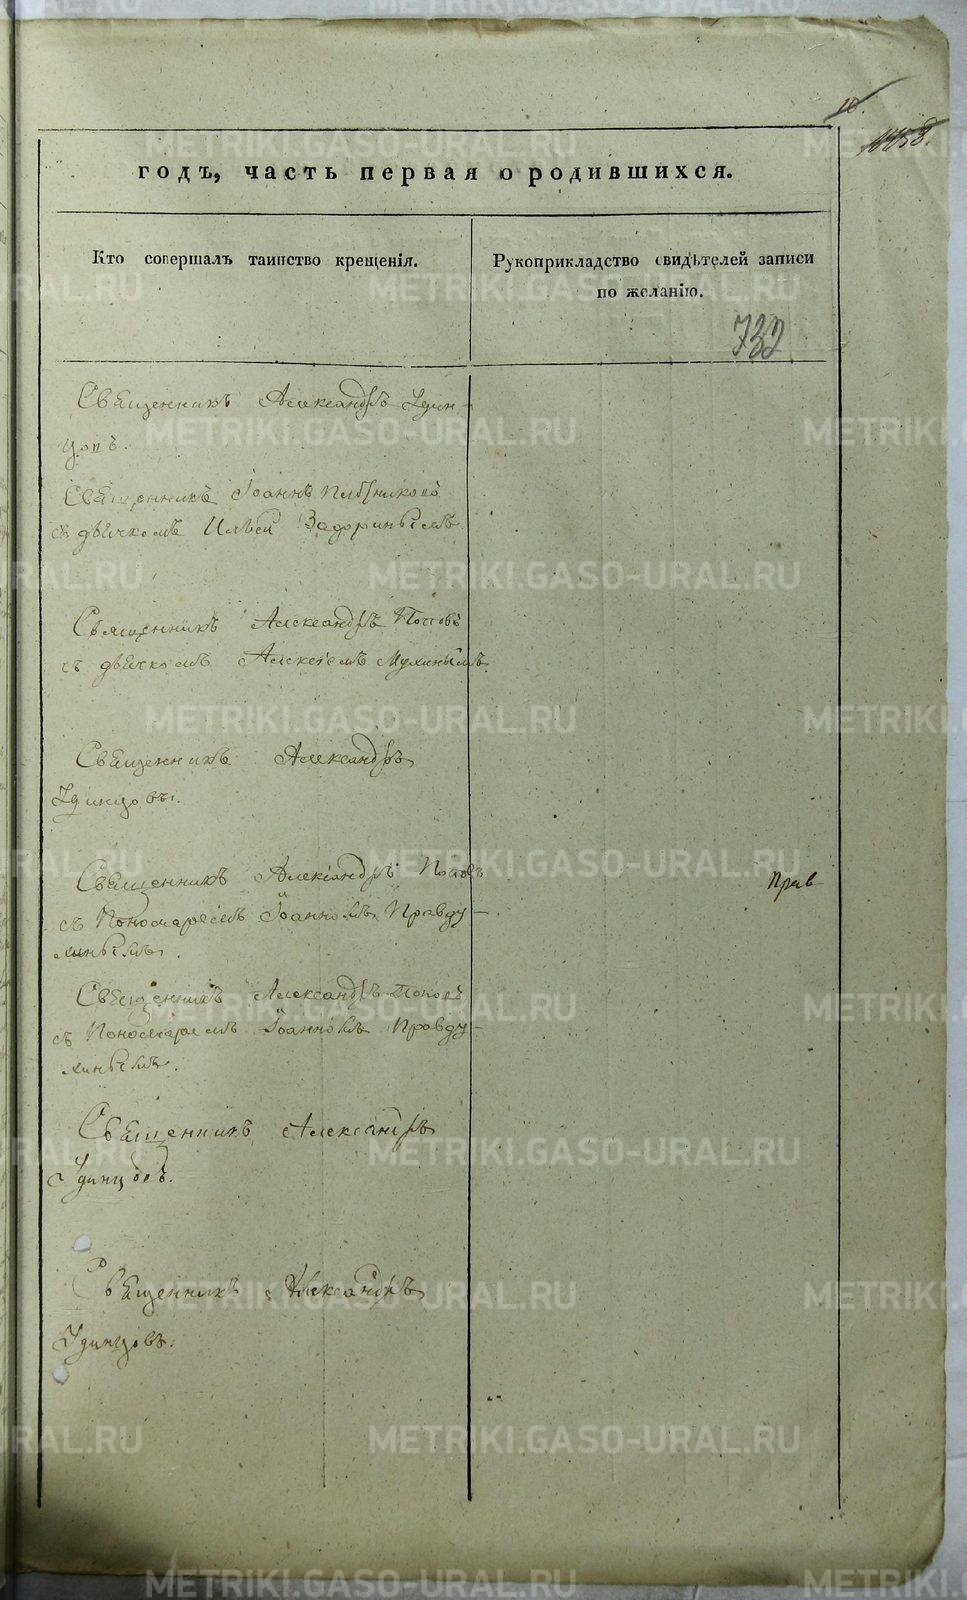 10.
1153.
годъ, часть первая о родившихся.
Кто совершалъ таинство крещенія.
Рукоприкладство свидѣтелей записи
по желанію.
732
Священникъ Александръ Удин-
цовъ.
Священникъ Іоаннъ
съ дьячкомъ Ильей Задоринымъ
Священникъ Александръ Поповъ
съ дьячкомъ Алексіемъ Мухинымъ
Священникъ Александръ
Удинцовъ.
Священникъ Александръ Поповъ
съ Пономаремъ Іоанномъ Правду-
хинымъ.
Прав
Священникъ Александръ Поповъ
съ Пономаремъ Іоанномъ Правду-
хинымъ.
Священникъ Александръ
Удинцовъ.
Священникъ Александръ
Удинцовъ.
METRIKI.GASO-URAL.RU